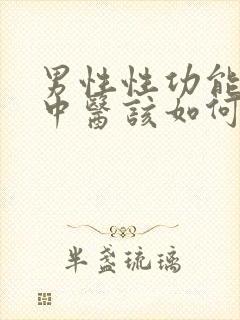 男性性功能
中醫該如何
半盞琉璃